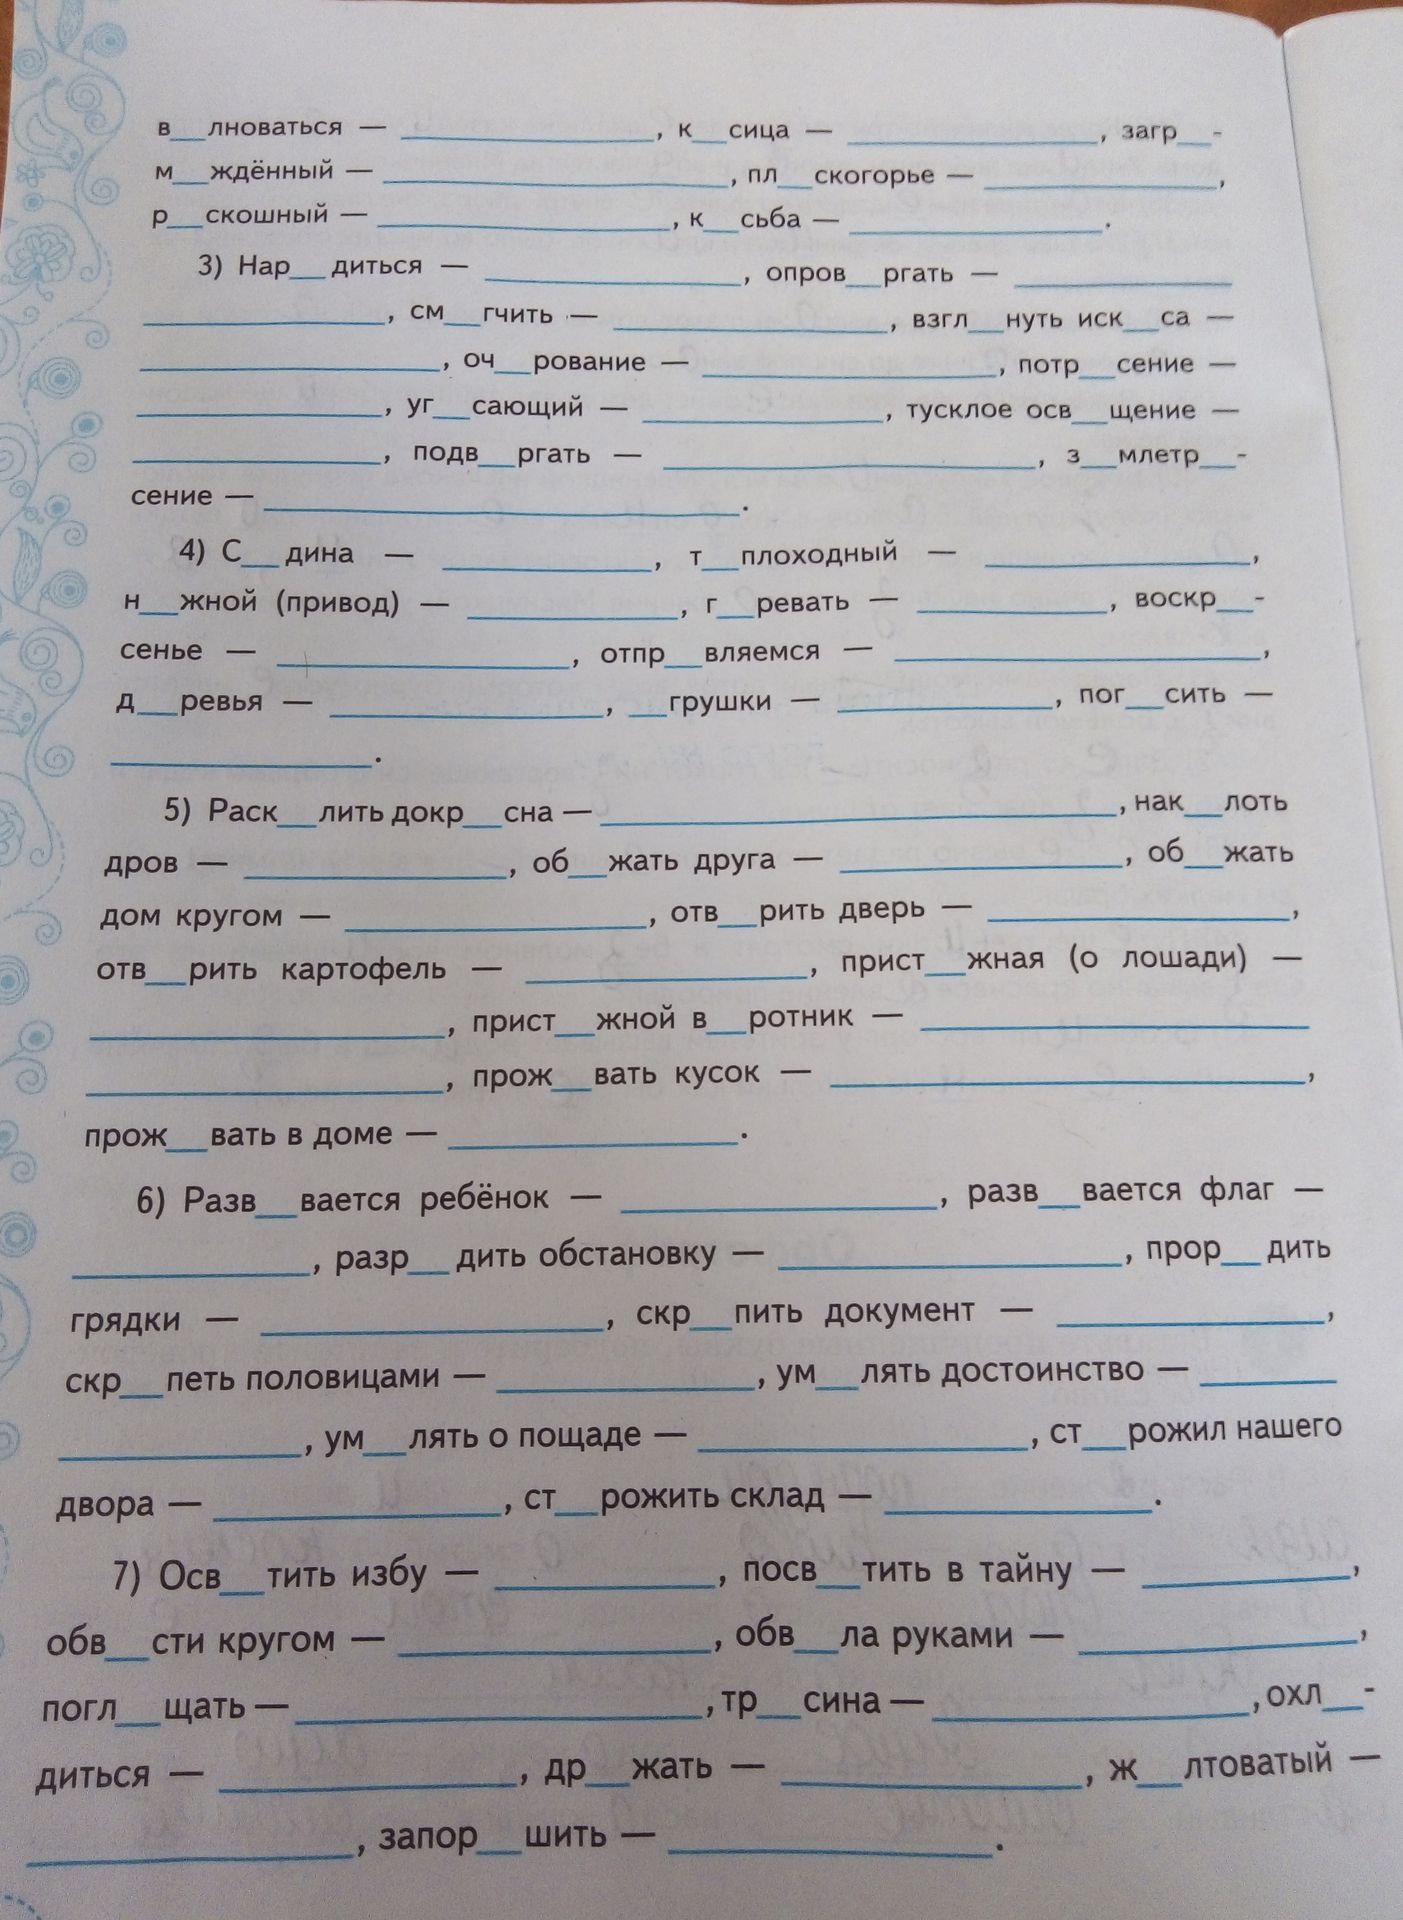 в__лноваться — ________, к__сица — ________, загр__-
м__ждённый — ________, пл__скогорье — ________,
р__скошный — ________, к__сьба — ________.
3) Нар__диться — ________, опров__ргать — ________
________, см__гчить — ________, взгл__нуть иск__са —
________, оч__рование — ________, потр__сение —
________, уг__сающий — ________, тусклое осв__щение —
________, подв__ргать — ________, з__млетр__-
сение — ________.
4) С__дина — ________, т__плоходный — ________,
н__жной (привод) — ________, г__ревать — ________, воскр__-
сенье — ________, отпр__вляемся — ________,
д__ревья — ________, __грушки — ________, пог__сить —
________.
5) Раск__лить докр__сна — ________, нак__лоть
дров — ________, об__жать друга — ________, об__жать
дом кругом — ________, отв__рить дверь — ________,
отв__рить картофель — ________, прист__жная (о лошади) —
________, прист__жной в__ротник — ________
________, прож__вать кусок — ________,
прож__вать в доме — ________.
6) Разв__вается ребёнок — ________, разв__вается флаг —
________, разр__дить обстановку — ________, прор__дить
грядки — ________, скр__пить документ — ________,
скр__петь половицами — ________, ум__лять достоинство — ________
________, ум__лять о пощаде — ________, ст__рожил нашего
двора — ________, ст__рожить склад — ________.
7) Осв__тить избу — ________, посв__тить в тайну — ________,
обв__сти кругом — ________, обв__ла руками — ________,
погл__щать — ________, тр__сина — ________, охл__-
диться — ________, др__жать — ________, ж__лтоватый —
________, запор__шить — ________.